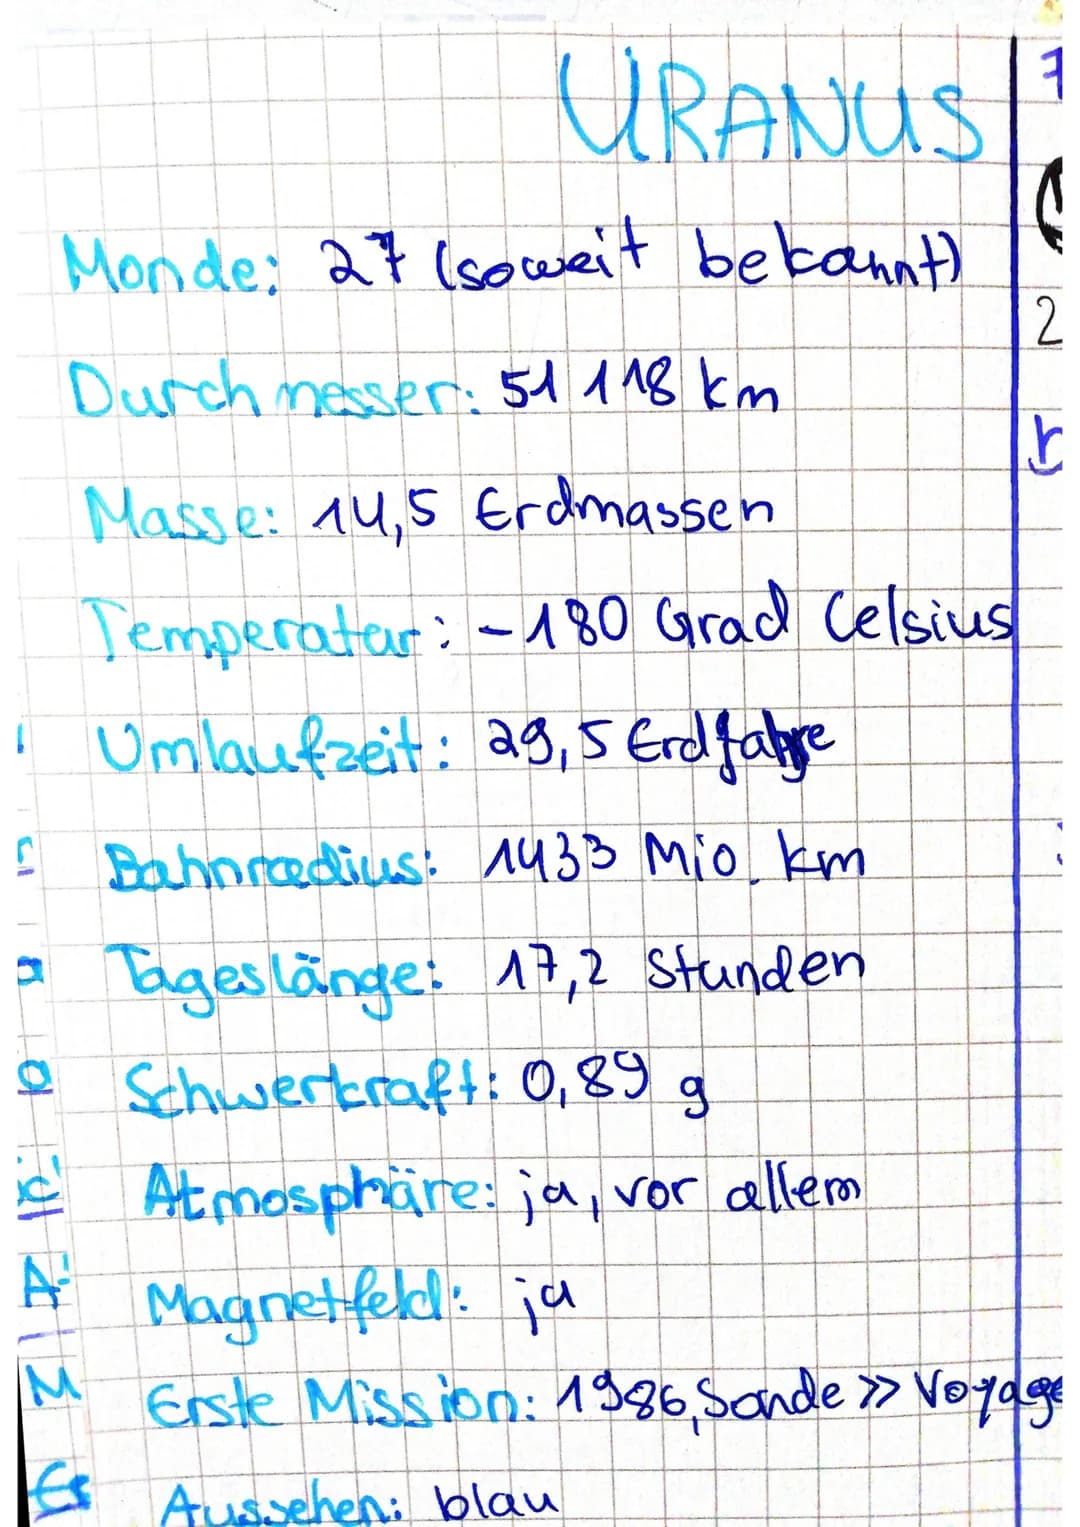 URANUS
Monde: 27 (soweit bekannt)
Durchmesser: 51 118 km
Masse: 14,5 Erdmassen
Temperatur: -180 Grad Celsius
Umlaufzeit: 29,5 Erdjahre
Bahnradius: 1433 Mio. km
Tageslänge: 17,2 Stunden
Schwerkraft: 0,89 g
Atmosphäre: ja, vor allem
Magnetfeld: ja
Erste Mission: 1986, Sonde >> Voyage
Aussehen: blau